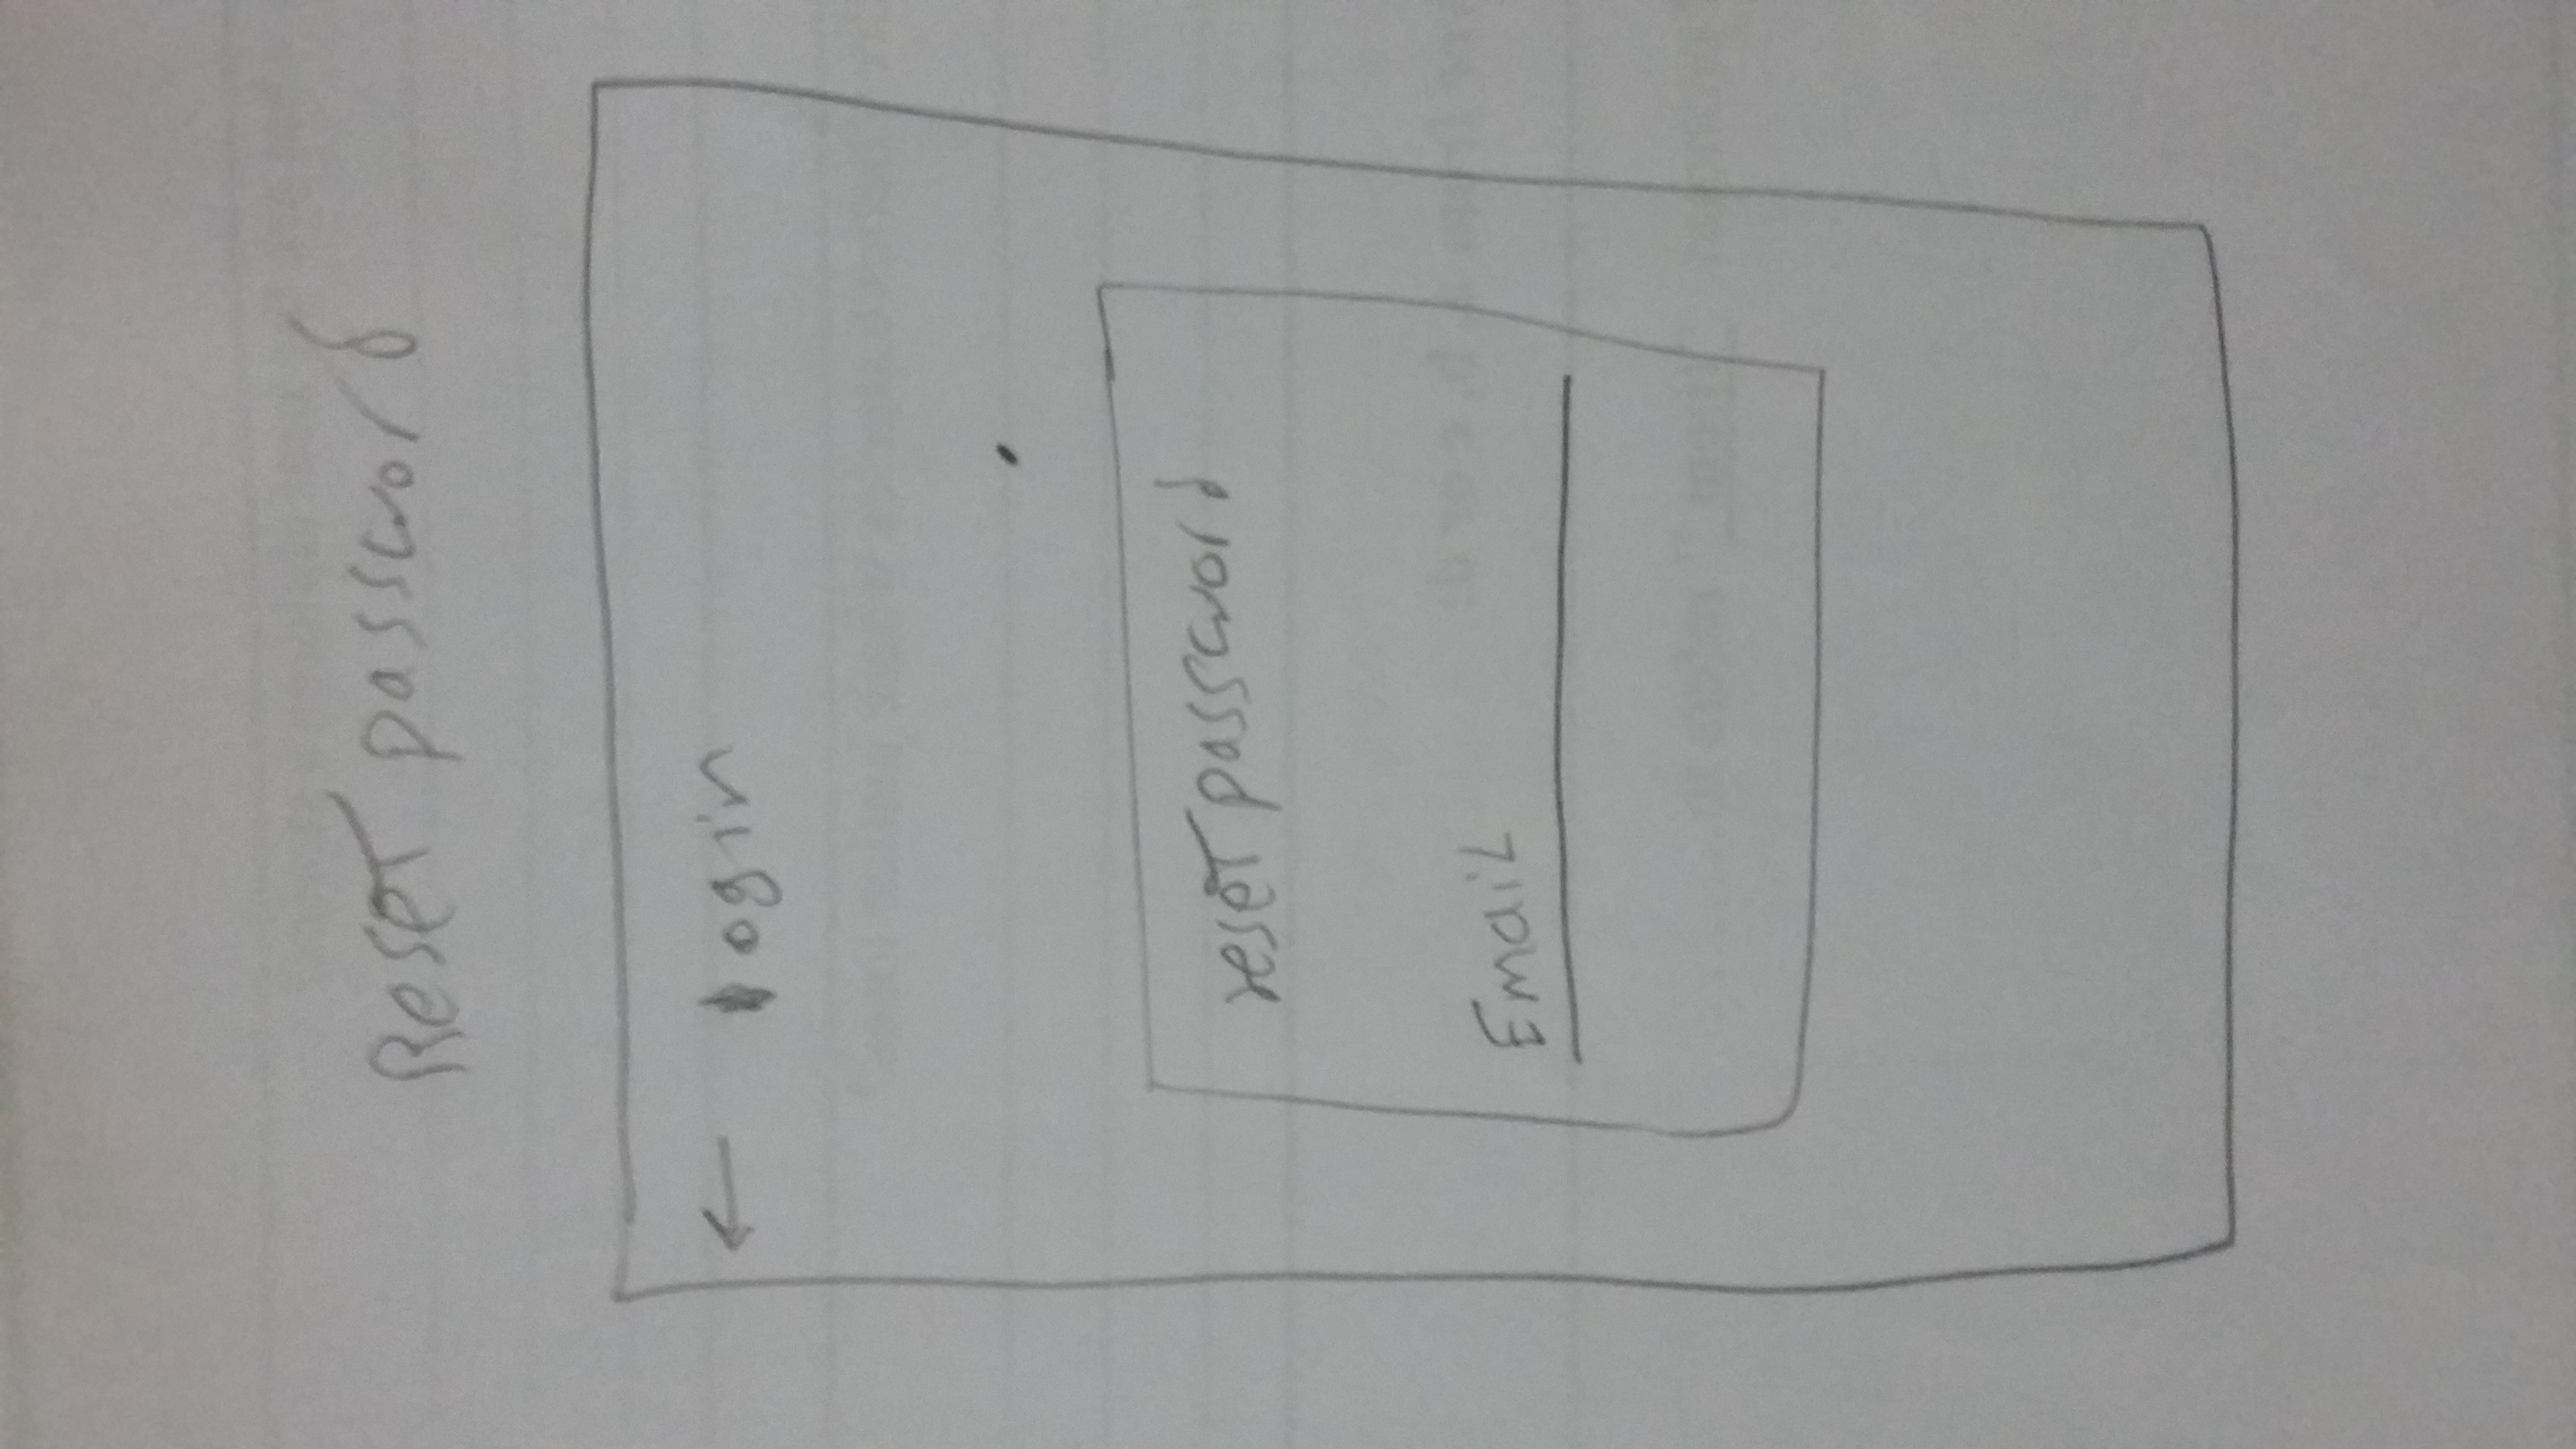 Reset password
← login
reset password
Email